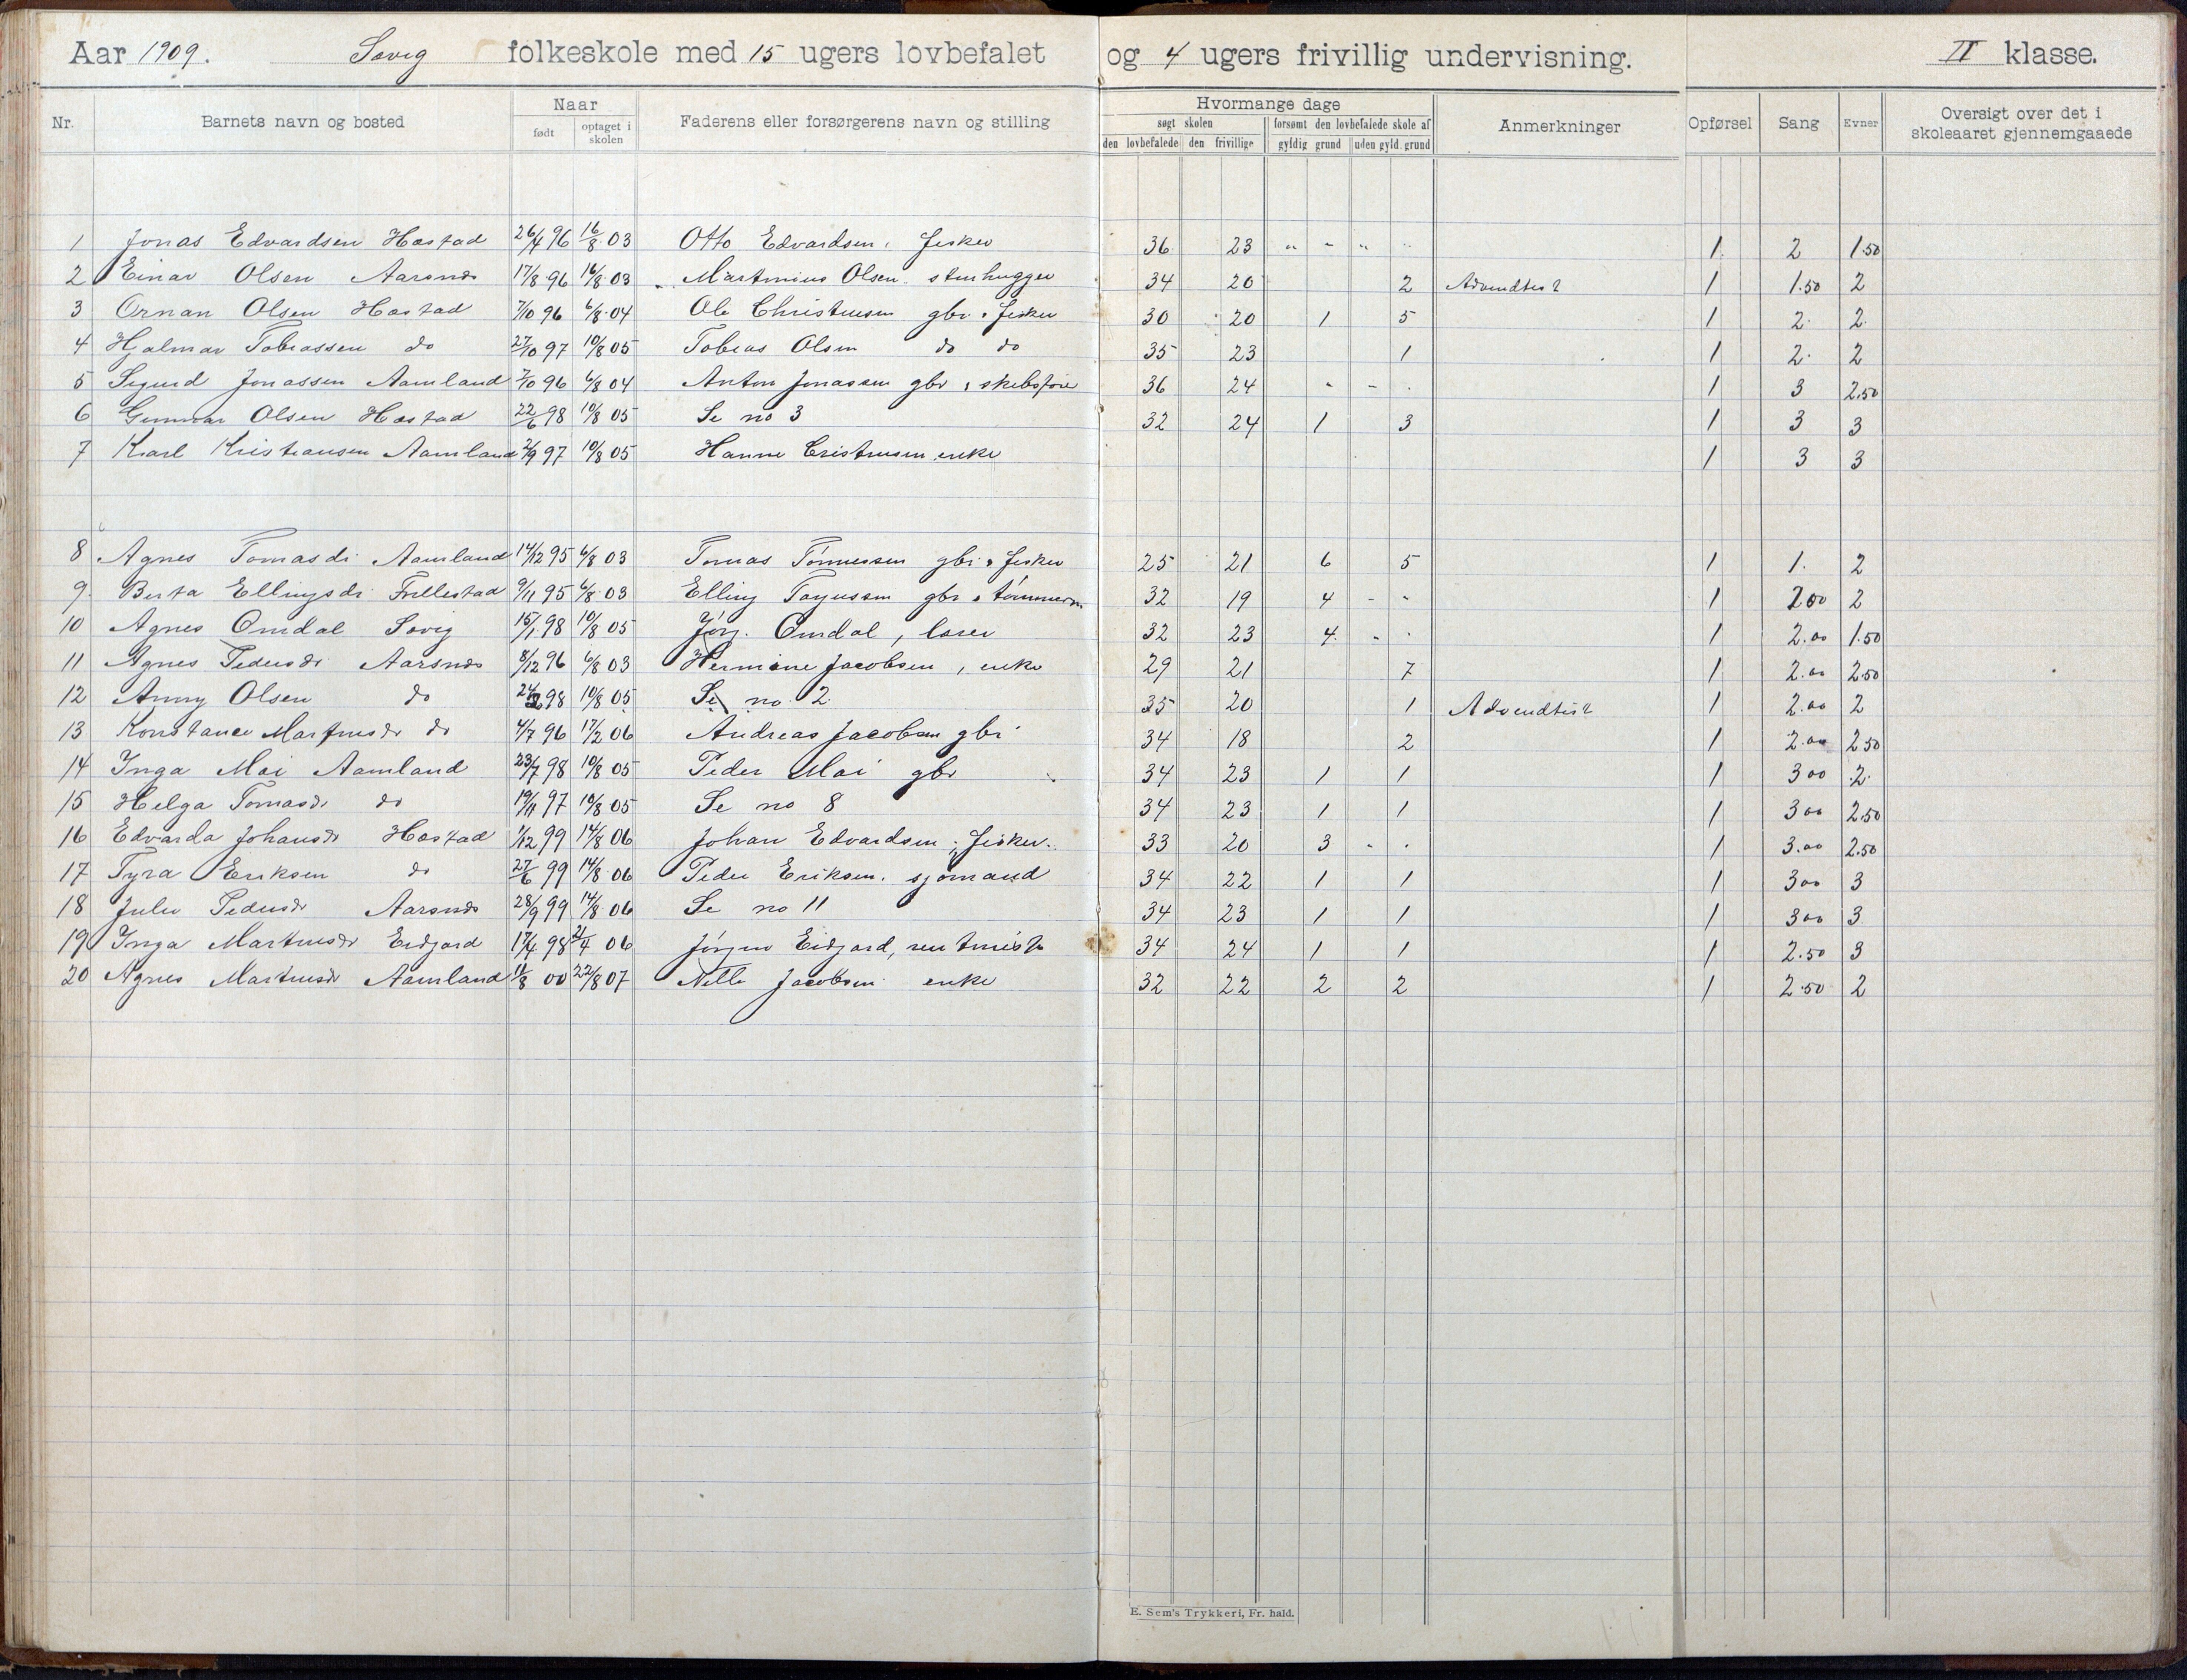 Aar 1909. Søvig folkeskole med 15 ugers lovbefalet og 4 ugers frivillig undervisning. II klasse.
Nr. Barnets navn og bosted Naar født optaget i skolen Faderens eller forsørgerens navn og stilling Hvormange dage søgt skolen den lovbefalede den frivillige forsømt den lovbefalede skole af gyldig grund uden gyld. grund Anmerkninger Opførsel Sang Evner Oversigt over det i skoleaaret gjennemgaaede
1 Jonas Edvardsen Hæstad 26/4 96 16/8 03 Otto Edvardsen, fisker 36 23 " " " " 1 2 1.50
2 Einar Olsen Aarsnes 17/8 96 16/8 03 Martinius Olsen stenhugger 34 20 2 Advendtist 1 1.50 2
3 Ornan Olsen Hæstad 7/10 96 6/8 04 Ole Christensen gbr. & fisker 30 20 1 5 1 2 2
4 Hjalmar Tobiassen do 27/10 97 10/8 05 Tobias Olsen do do 35 23 1 1 2 2
5 Sigurd Jonassen Aamland 7/10 96 6/8 04 Anton Jonassen gbr & skibsfører 36 24 " " 1 3 2.50
6 Gunnar Olsen Hæstad 22/6 98 10/8 05 Se no 3 32 24 1 3 1 3 3
7 Karl Kristiansen Aamland 2/9 97 10/8 05 Hanne Cristensen enke 1 3 3
8 Agnes Tomasdr Aamland 14/12 95 6/8 03 Tomas Tønnessen gbr & fisker 25 21 6 5 1 1 2
9 Berta Ellingsdr Frillestad 9/11 95 6/8 03 Elling Tagussen gbr & tømmerm 32 19 4 " " 1 2.00 2
10 Agnes Omdal Søvig 15/1 98 10/8 05 Jørg. Omdal, lærer 32 23 4 " " 1 2.00 1.50
11 Agnes Pedersdr Aarsnes 8/12 96 6/8 03 Hermine Jacobsen, enke 29 21 7 1 2.00 2.50
12 Anny Olsen do 98 10/8 05 Se no 2 35 20 1 Advendtist 1 2.00 2
13 Konstance Martinsdr do 4/7 96 17/2 06 Andreas Jacobsen gbr 34 18 2 1 2.00 2.50
14 Inga Moi Aamland 23/7 98 10/8 05 Peder Moi gbr 34 23 1 1 1 3.00 2
15 Helga Tomasdr do 19/11 97 10/8 05 Se no 8 34 23 1 1 1 3.00 2.50
16 Edvarda Johansdr Hæstad 1/12 99 14/8 06 Johan Edvardsen, fisker 33 20 3 " " 1 3.00 2.50
17 Tyra Eriksen do 27/6 99 14/8 06 Peder Eriksen, sjømand 34 22 1 1 1 3.00 3
18 Julie Pedersdr Aarsnes 28/9 99 14/8 06 Se no 11 34 23 1 1 1 3.00 3
19 Inga Martinsdr Eidjord 17/4 98 21/4 06 Jørgen Eidjord, rentenist 34 24 1 1 1 2.50 3
20 Agnes Martinsdr Aamland 11/8 00 22/8 07 Nelle Jacobsen enke 32 22 2 2 1 2.50 2
E. Sem's Trykkeri, Fr. hald.